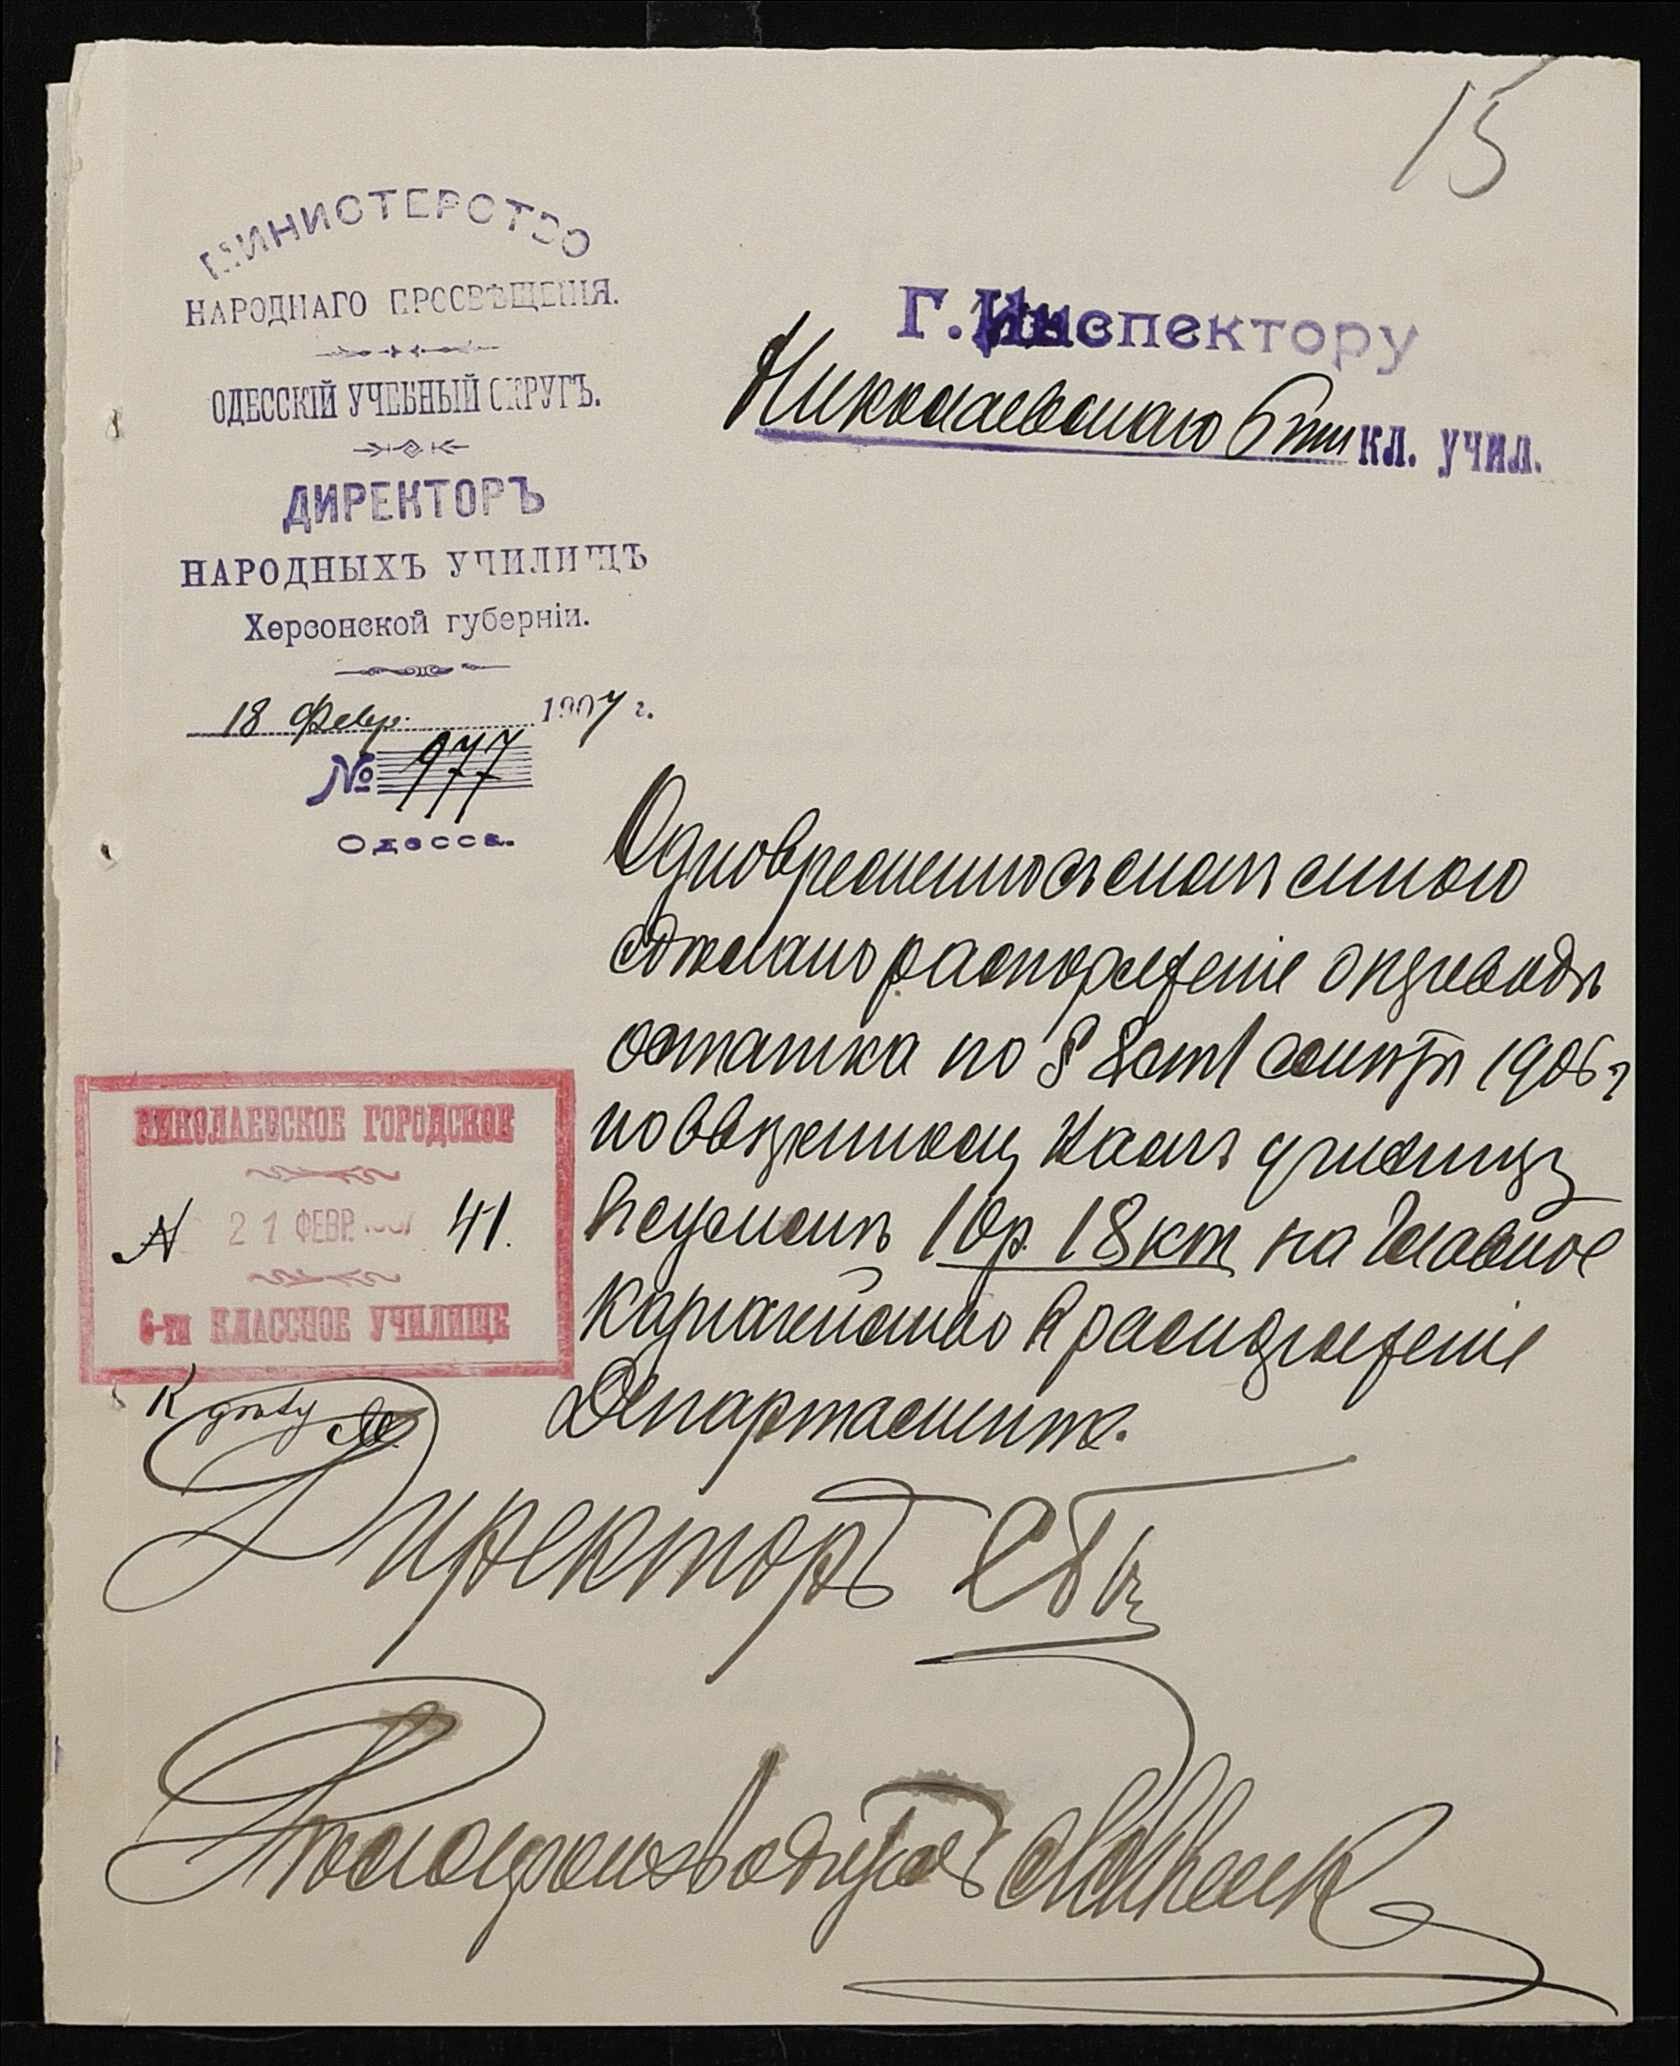 15
МИНИСТЕРСТВО
НАРОДНАГО ПРОСВѢЩЕНІЯ.
ОДЕССКІЙ УЧЕБНЫЙ ОКРУГЪ.
ДИРЕКТОРЪ
НАРОДНЫХЪ УЧИЛИЩЪ
Херсонской губерніи.
18 Февр. 1907 г.
№ 977
Одесса.
Г. Инспектору
Николаевскаго 6ти кл. учил.
Одновременно съ симъ мною
сдѣлано распоряженіе о переводѣ
остатка по § 8 ст 1 смѣты 1906 г
по ввѣренному Вамъ училищу
въ суммѣ 10р. 18 коп на Главное
Казначейство въ распоряженіе
Департамента.
НИКОЛАЕВСКОЕ ГОРОДСКОЕ
N 21 ФЕВР. 1907 41.
6-ти КЛАССНОЕ УЧИЛИЩЕ
К дѣлу
Директоръ
Дѣлопроизводитель